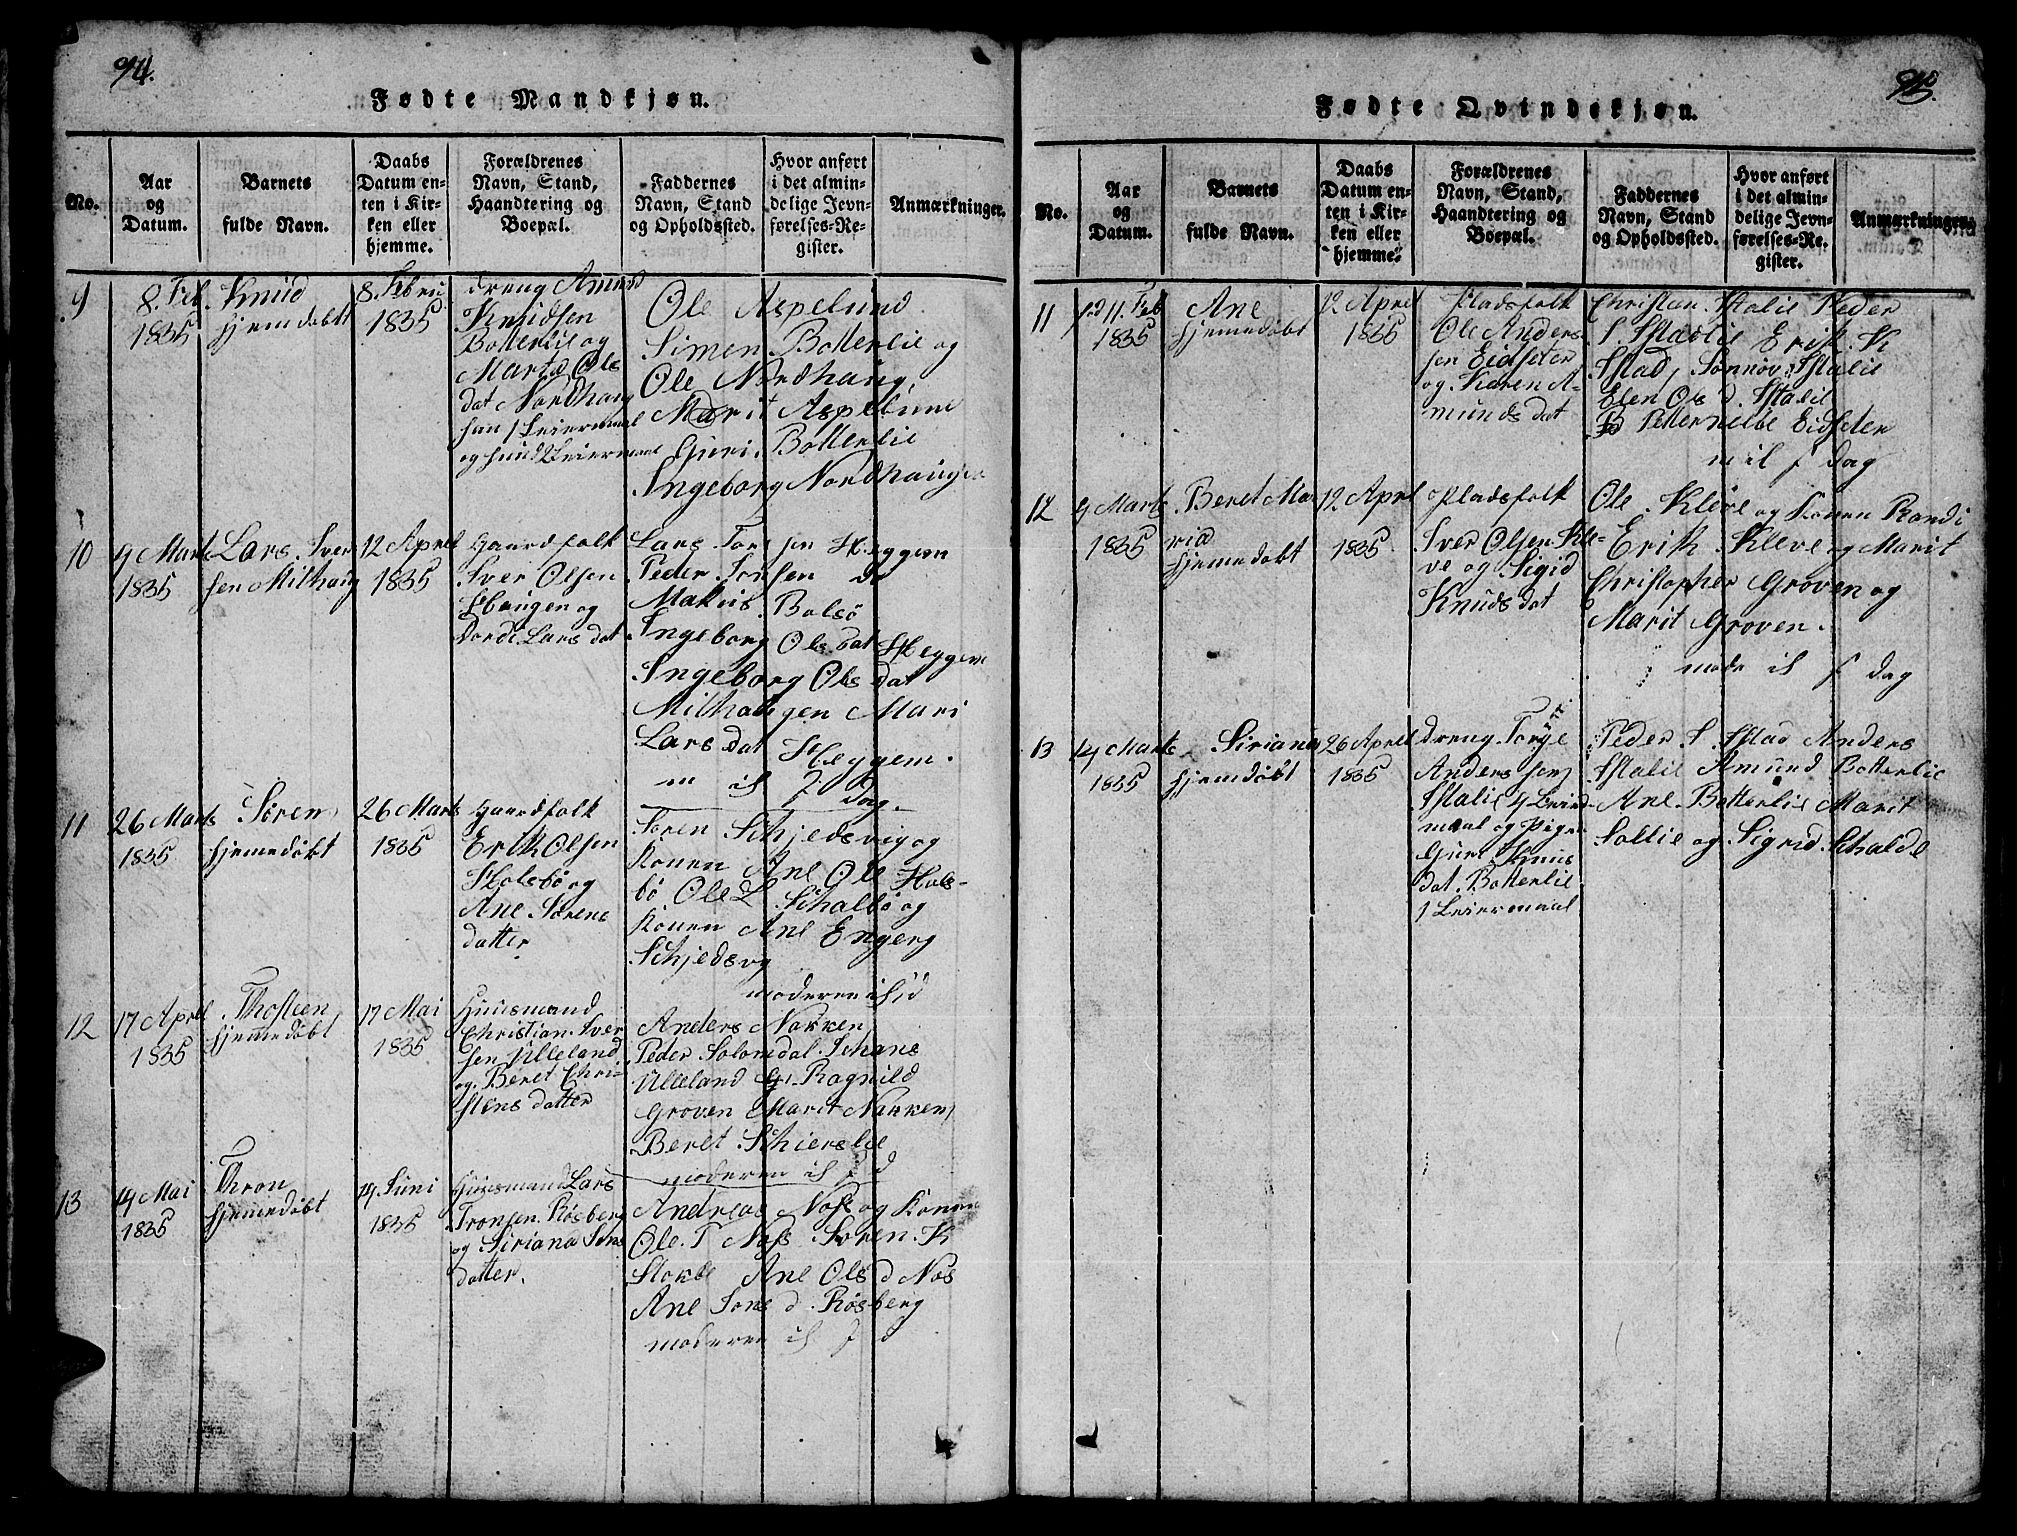 94.
Fødte Mandkjøn.
No.
Aar
og
Datum.
Barnets
fulde Navn.
Daabs
Datum en-
ten i Kir-
ken eller
hjemme.
Forældrenes
Navn, Stand,
Haandtering og
Boepæl.
Faddernes
Navn, Stand
og Opholdssted.
Hvor anført
i det almin-
delige Jevn-
førelses-Re-
gister.
Anmærkninger.
9
8. Feb.
1835
Knud
hjemdøbt
8. Febru
1835
dreng Amund
Knudsen
Botterlie og
Marta Ols
dat Nordhaug
han 1 Leiermaal
og hund 2 Leiermaal
Ole Aspelund
Simen Botterlie og
Ole Nordhaug,
Marit Aspelund
Guri Botterlie
Ingeborg Nordhaugen
10
9 Marts
1835
Lars Iver
sen Milhaug
12 Aprel
1835
Gaardfolk
Iver Olsen
Haugen og
Dordi Lars dat
Lars Tor sen Heggem
Peder Torsen do
Makus Bolsø
Ingeborg Ols dat Heggem
Ingeborg Ols dat
Milhaugen Mari
Lars dat Heggem.
m il f dag.
11
26 Marts
1835
Søren
hjemedøbt
26 Marts
1835
Gaardfolk
Erik Olsen
Holsbø og
Ane Sørens
datter
Søren Schjedsvig og
Konen Ane Ole Hols-
bø Ole L Schalbø og
Konen Ane Engerg
Schjedsvg
moderen
12
17 Aprel
1835
Thosten
hjemmedøbt
17 Mai
1835
Huusmand
Christian Iver
sen Ulleland
og Beret Chri-
stens datter
Anders Nakken
Peder Solomdal Johans
Ulleland G. Ragnild
Groven Marit Nakken
Beret Schierslie
moderen il f d
13
14 Mai
1835
Thron
hjemmedøbt
14 Juni
1835
Huusmand Lars
Tronsen Røsberg
og Siriana Sørs
datter.
Andreas Nos og Konen
Ole T Nofs Søren K
Stokke Ane Ols d Nos
Ane Jons d. Røsberg
moderen il f d
95.
Fødte Qvindekjøn.
No.
Aar
og
Datum.
Barnets
fulde Navn.
Daabs
Datum en-
ten i Kir-
ken eller
hjemme.
Forældrenes
Navn, Stand,
Haandtering og
Boepæl.
Faddernes
Navn, Stand
og Opholdssted.
Hvor anført
i det almin-
delige Jevn-
førelses-Re-
gister.
Anmærkninger.
11
11. Feb
1835
Ane
hjemmedøbt
12 Aprel
1835
Pladsfolk
Ole Anders
sen Eidseter
og Karen A-
munds dat
Christen Stalie Peder
S. Stadlie Erik K
Stad, Sonnøv Stalie
Elen Ols d. Stalie
Petternelle Eidseter
m il f dag
12
9 Marts
1835
Beret Ma
ria
hjemedøbt
12 Aprel
1835
Pladsfolk
Iver Olsen Kle-
ve og Sigid
Knuds dat
Ole Kleve og Konen Randi
Erik Kleve og Marit
Christopher Groven og
Marit Groven.
mode il f dag
13
14 Marts
1835
Siriana
hjemdøbt
26 Aprel
1835
dreng Torge
Anders sen
Stalie 4 Leier
maal og Pige
Guri Knuds
dat. Botterlie
1 Leiermaal
Peder S. Stad Anders
Stalie Amund Botterlie
Ane Botterlie Marit
Sollie og Sigrid Schalde